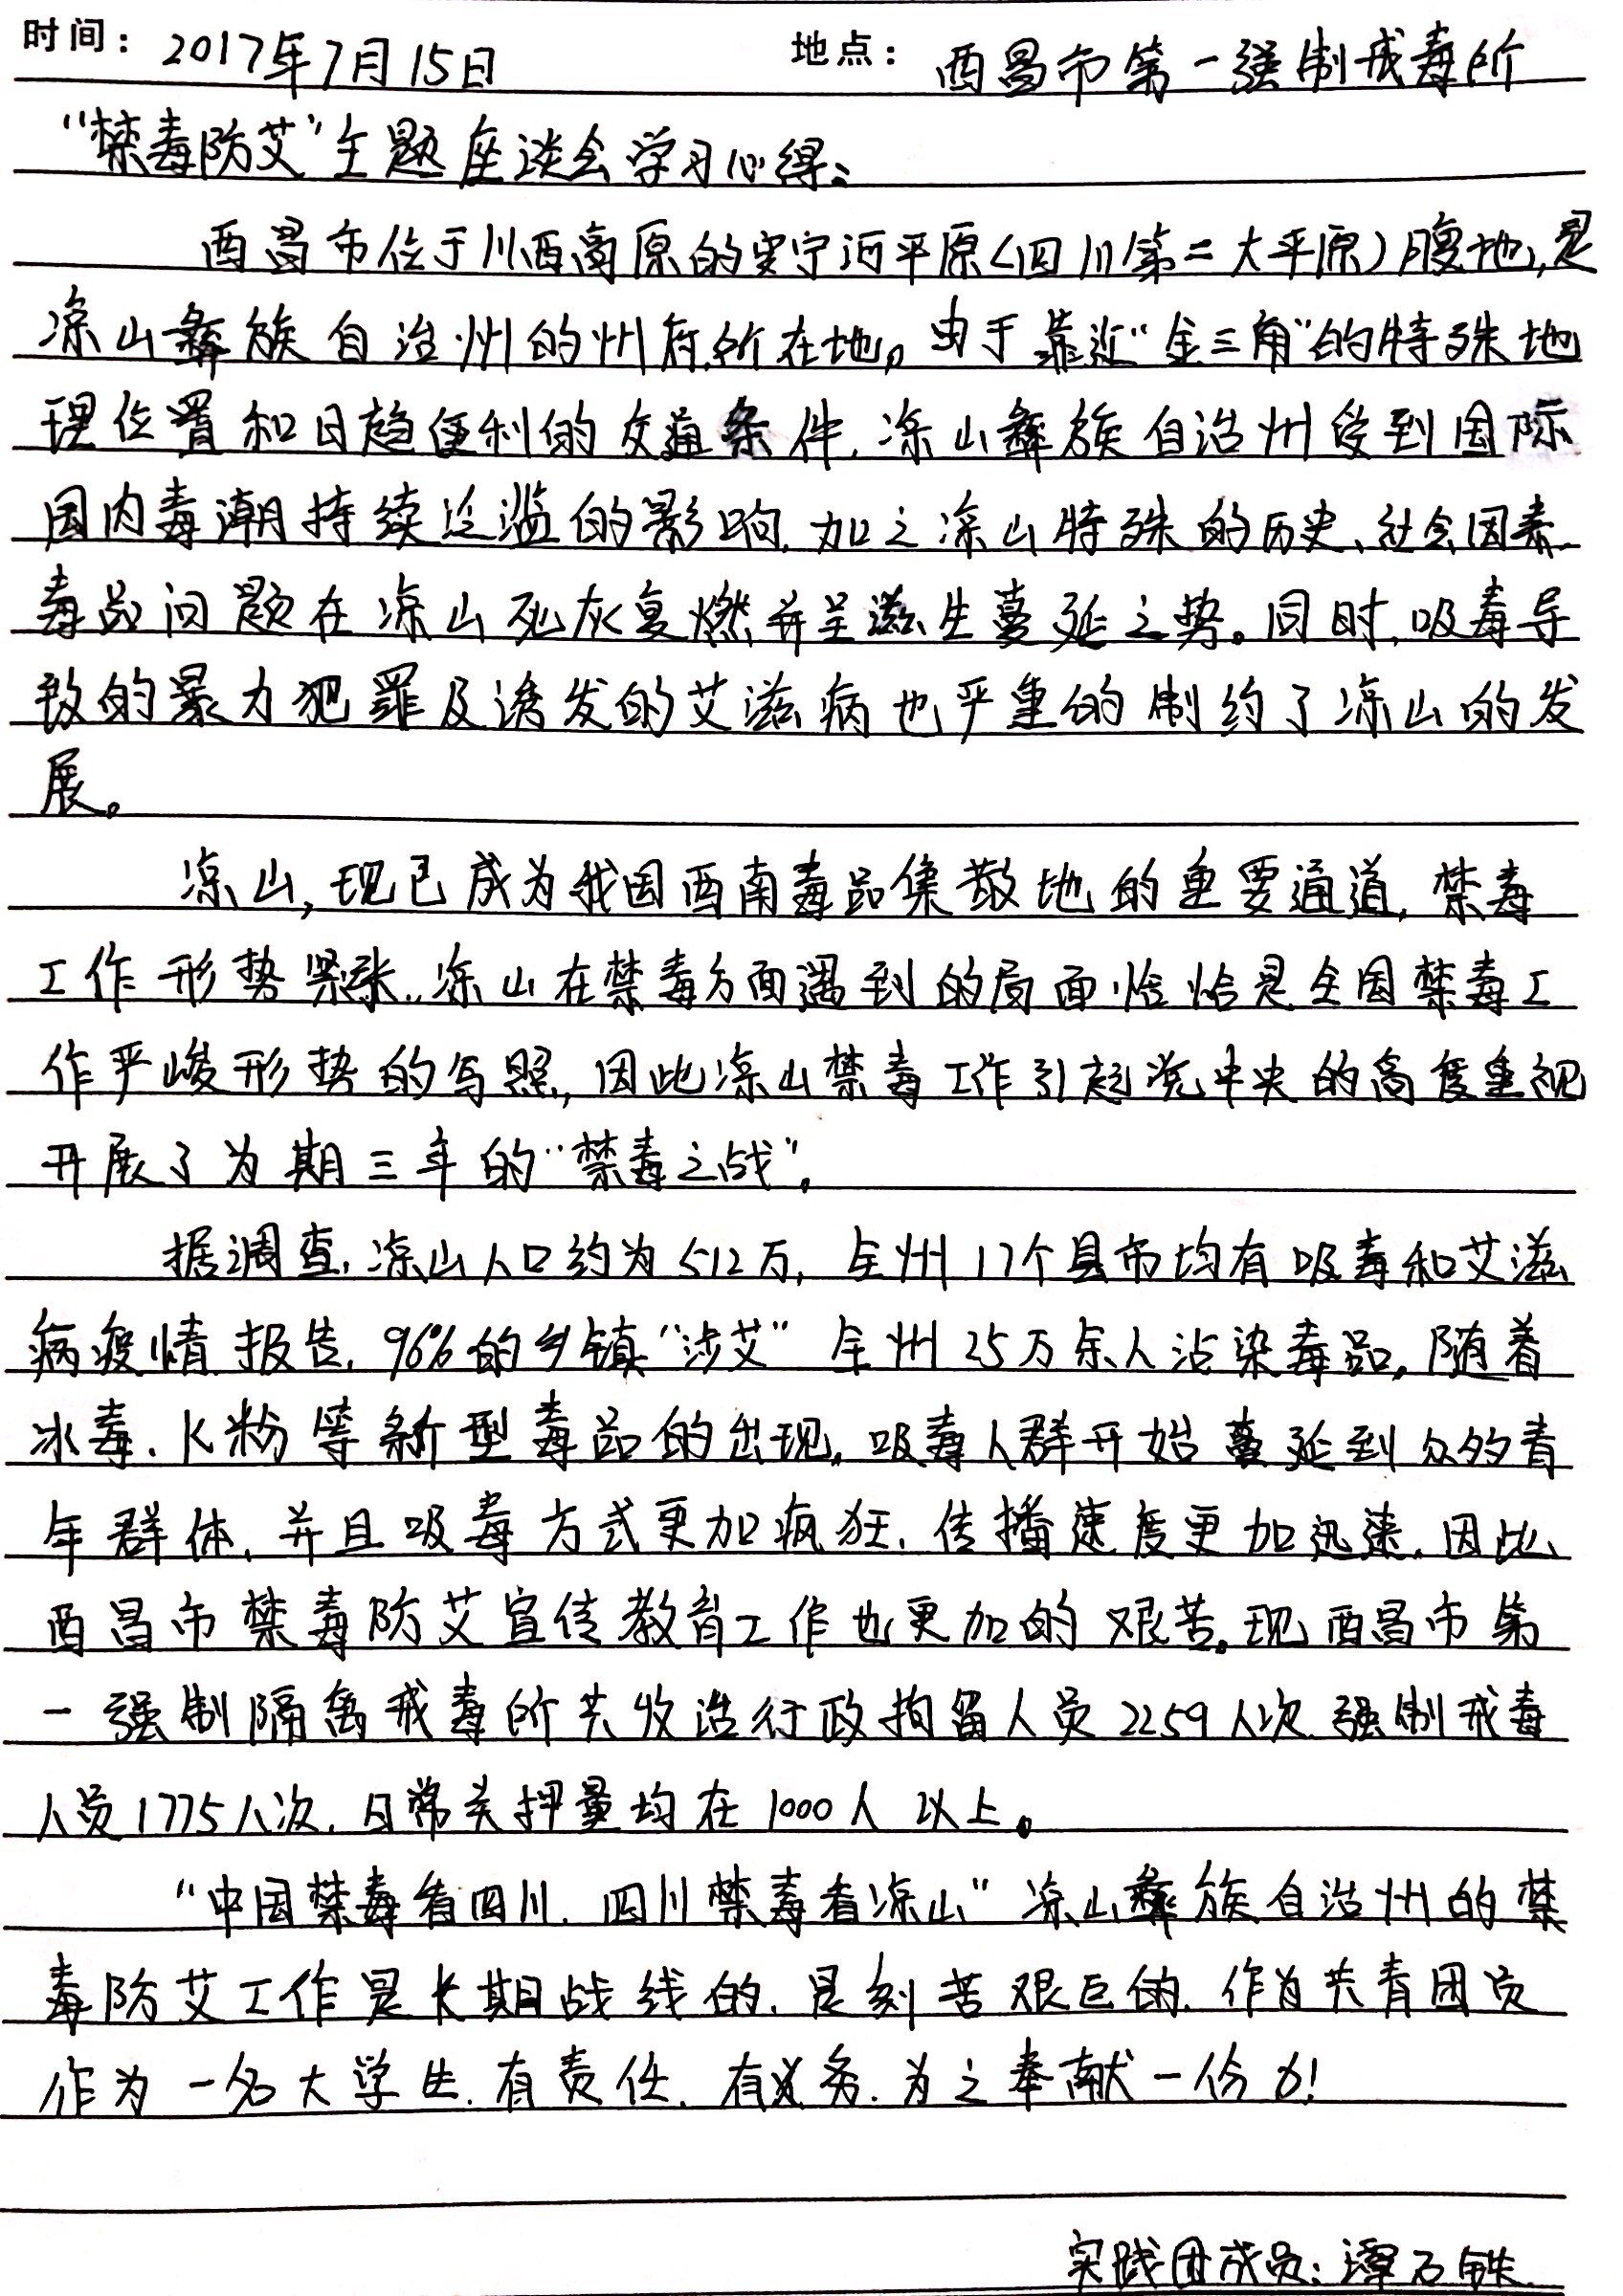 时间：2017年7月15日 地点：西昌市第一强制戒毒所
“禁毒防艾”主题座谈会学习心得：
西昌市位于川西高原的安宁河平原(四川第二大平原)腹地,是
凉山彝族自治州的州府所在地。由于靠近“金三角”的特殊地
理位置和日趋便利的交通条件,凉山彝族自治州受到国际
国内毒潮持续泛滥的影响,加之凉山特殊的历史、社会因素
毒品问题在凉山死灰复燃并呈滋生蔓延之势。同时,吸毒导
致的暴力犯罪及诱发的艾滋病也严重的制约了凉山的发
展。
凉山,现已成为我国西南毒品集散地的重要通道,禁毒
工作形势紧张,凉山在禁毒方面遇到的局面恰恰是全国禁毒工
作严峻形势的写照,因此凉山禁毒工作引起党中央的高度重视
开展了为期三年的“禁毒之战”。
据调查,凉山人口约为512万,全州17个县市均有吸毒和艾滋
病疫情报告,96%的乡镇“涉艾”全州25万余人沾染毒品,随着
冰毒、K粉等新型毒品的出现,吸毒人群开始蔓延到众多青
年群体,并且吸毒方式更加疯狂,传播速度更加迅速,因此
西昌市禁毒防艾宣传教育工作也更加的艰苦。现西昌市第
一强制隔离戒毒所共收治行政拘留人员2259人次,强制戒毒
人员1775人次,日常关押量均在1000人以上。
“中国禁毒看四川,四川禁毒看凉山”凉山彝族自治州的禁
毒防艾工作是长期战线的,是刻苦艰巨的,作为共青团员
作为一名大学生,有责任,有义务,为之奉献一份力!
实践团成员:谭石铁